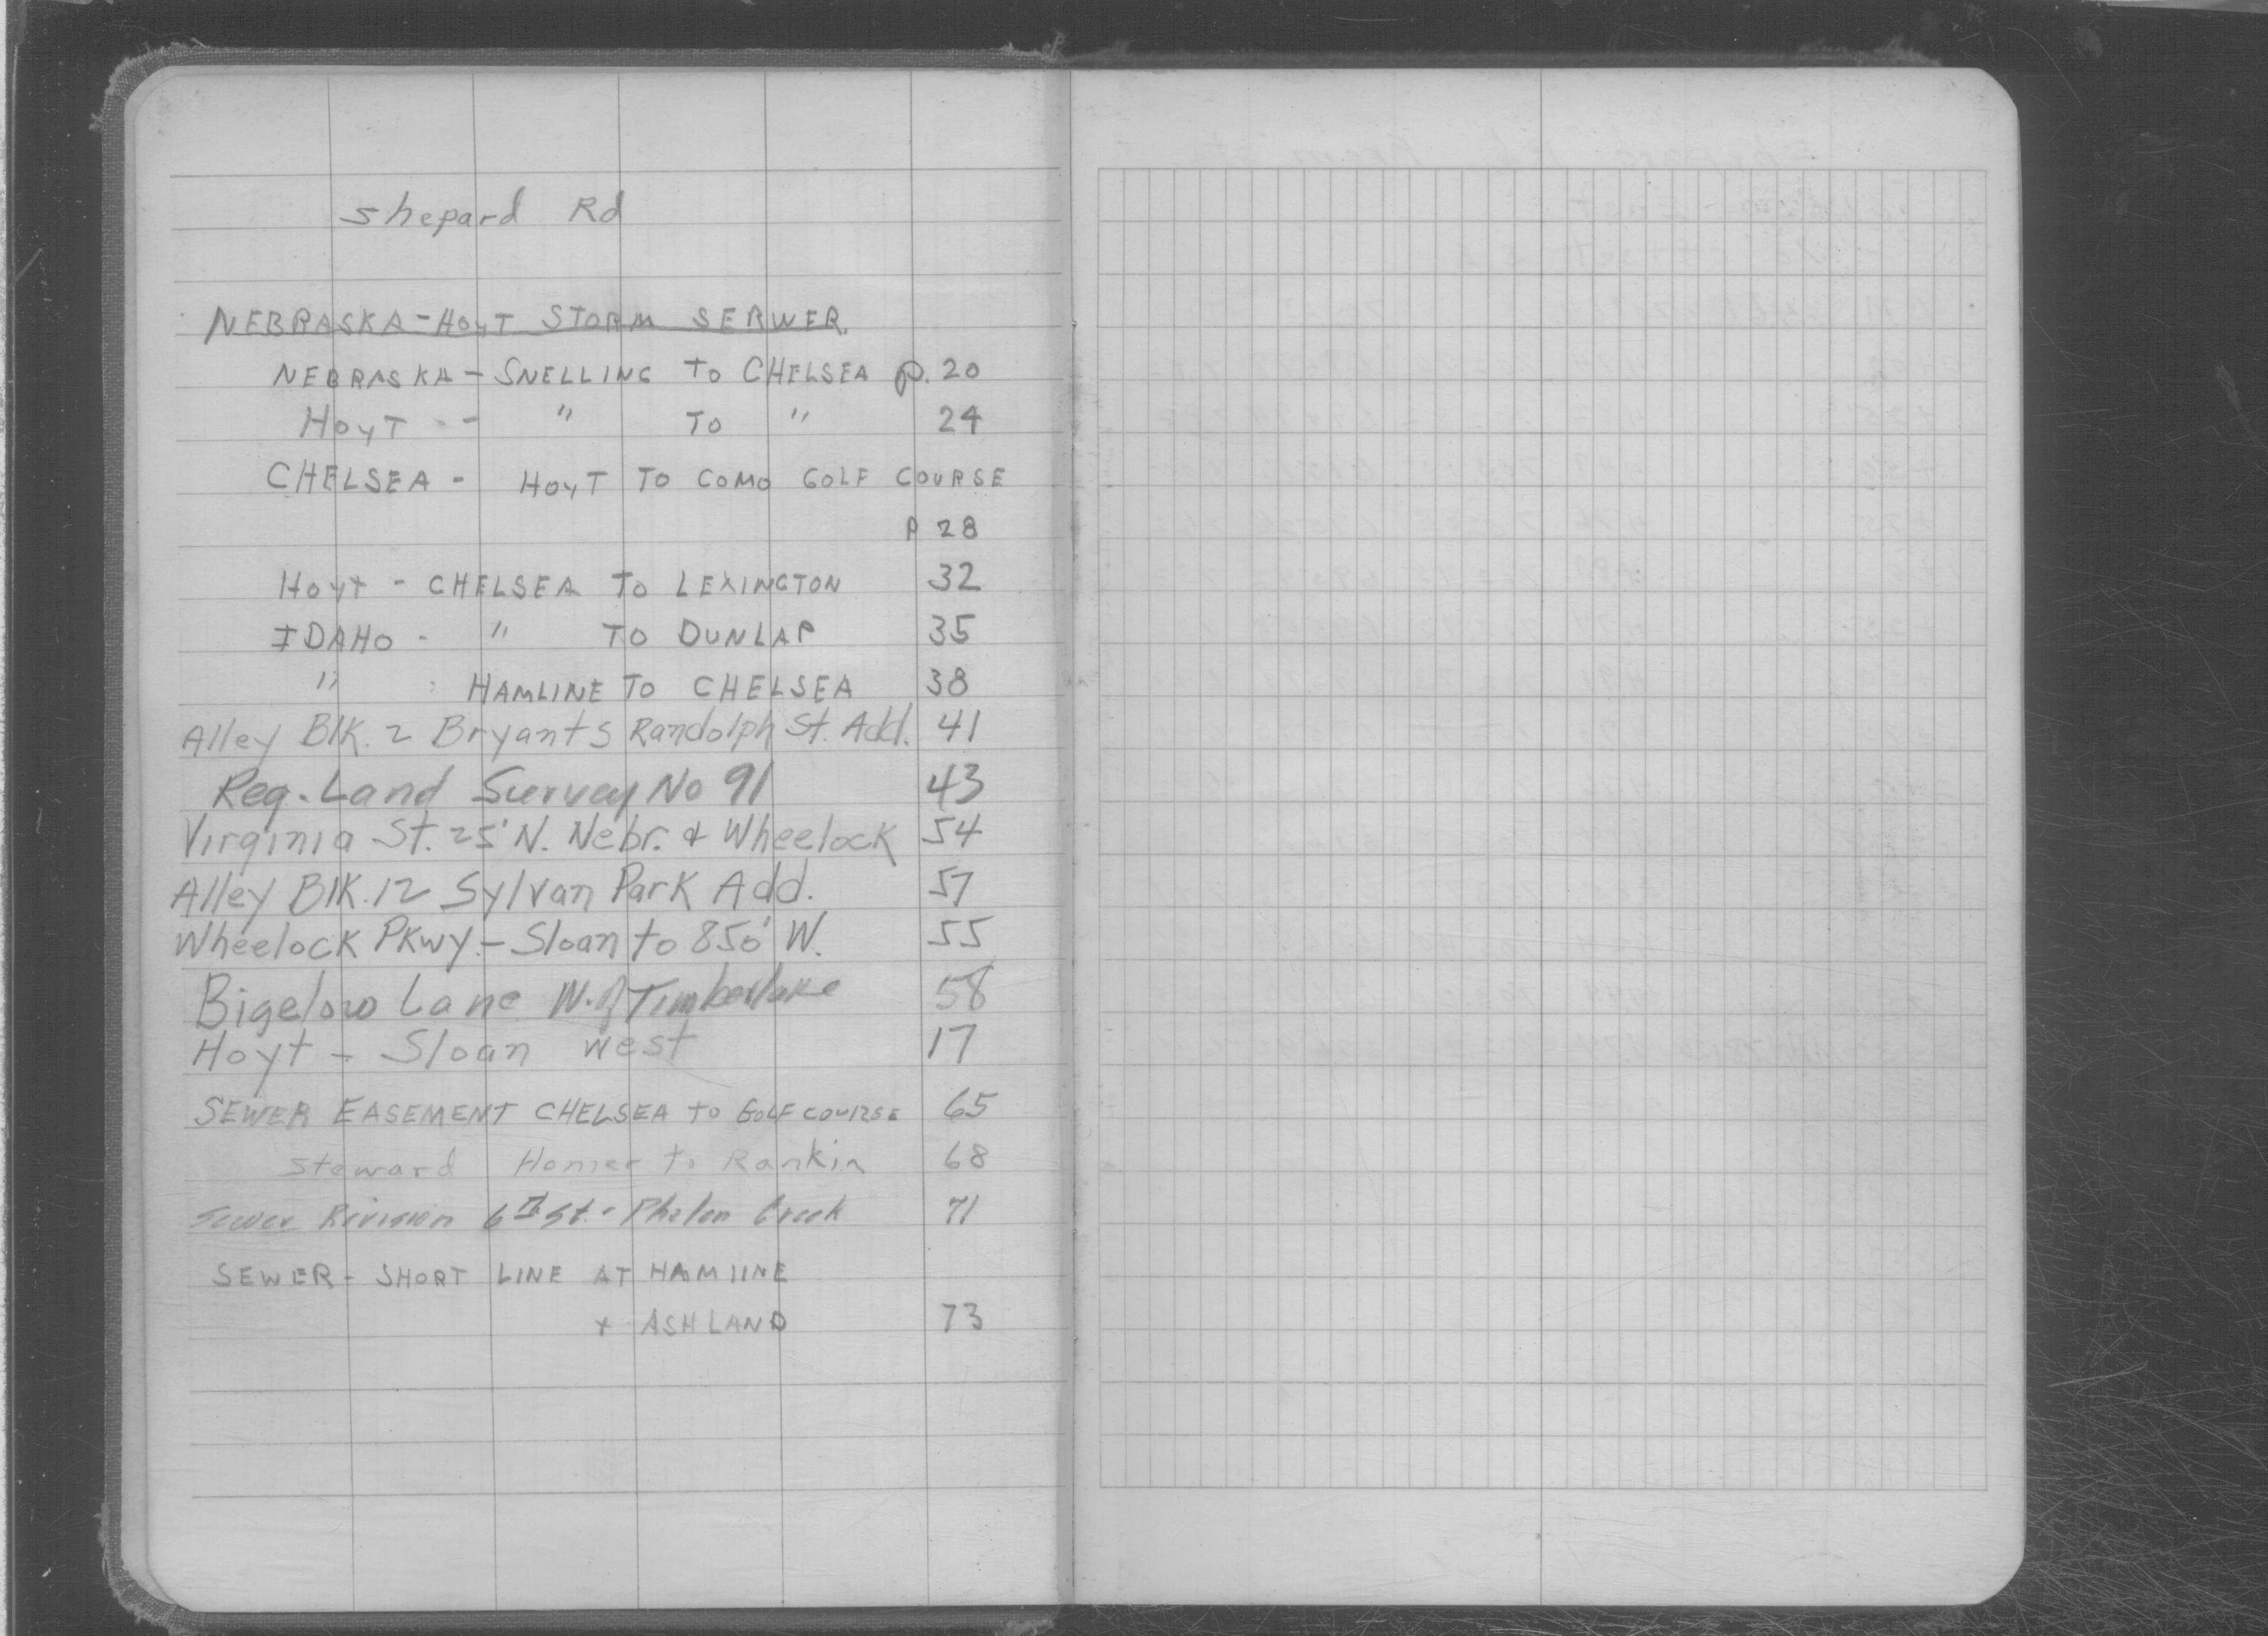 Shepard Rd
NEBRASKA-HOYT STORM SERWER
NEBRASKA - SNELLING TO CHELSEA p. 20
HOYT - - " TO " 24
CHELSEA - HOYT TO COMO GOLF COURSE
P 28
HOYT - CHELSEA TO LEXINGTON 32
IDAHO - " TO DUNLAP 35
" HAMLINE TO CHELSEA 38
Alley Blk. 2 Bryants Randolph St. Add. 41
Reg. Land Survey No 91 43
Virginia St. 25' N. Nebr. & Wheelock 54
Alley Blk. 12 Sylvan Park Add. 57
Wheelock Pkwy - Sloan to 850' W. 55
Bigelow Lane W. of Timberlake 58
Hoyt - Sloan West 17
SEWER EASEMENT CHELSEA TO GOLF COURSE 65
Steward Homer to Rankin 68
Sewer Revision 6th St. - Phalen Creek 71
SEWER - SHORT LINE AT HAMLINE
+ ASHLAND 73